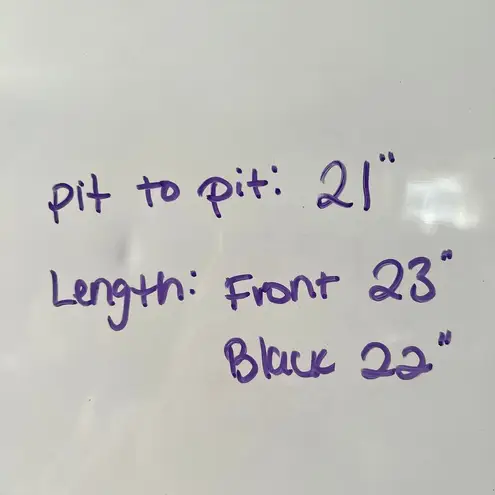 pit to pit: 21"
Length: Front 23"
Black 22"